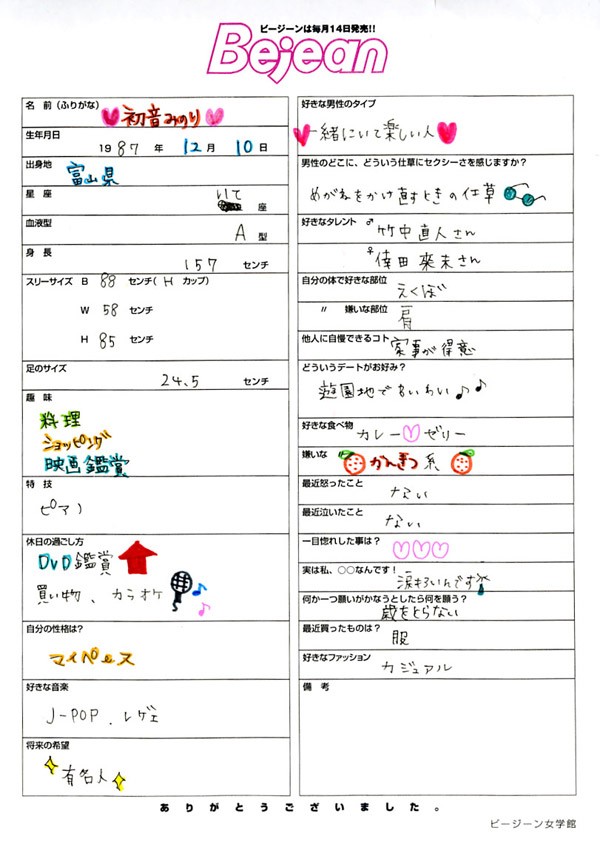 ビージーンは毎月14日発売!!
Bejean
名 前 (ふりがな)
初音みのり
生年月日
1987 年 12 月 10 日
出身地
富山県
星 座
いて 座
血液型
A 型
身 長
157 センチ
スリーサイズ B 88 センチ( H カップ)
W 58 センチ
H 85 センチ
足のサイズ
24.5 センチ
趣 味
料理
ショッピング
映画鑑賞
特 技
ピアノ
休日の過ごし方
DVD鑑賞
買い物、カラオケ
自分の性格は?
マイペース
好きな音楽
J-POP、レゲエ
将来の希望
有名人
好きな男性のタイプ
一緒にいて楽しい人
男性のどこに、どういう仕草にセクシーさを感じますか?
めがねをかけ直すときの仕草
好きなタレント ♂
竹中直人さん
♀
倖田來未さん
自分の体で好きな部位
えくぼ
〃 嫌いな部位
肩
他人に自慢できるコト
家事が得意
どういうデートがお好み?
遊園地でわいわい♪♪
好きな食べ物
カレー♡ゼリー
嫌いな 〃
かんきつ系
最近怒ったこと
ない
最近泣いたこと
ない
一目惚れした事は?
♡♡♡
実は私、○○なんです!
涙もろいんです
何か一つ願いがかなうとしたら何を願う?
歳をとらない
最近買ったものは?
服
好きなファッション
カジュアル
備 考
ありがとうございました。
ビージーン女学館